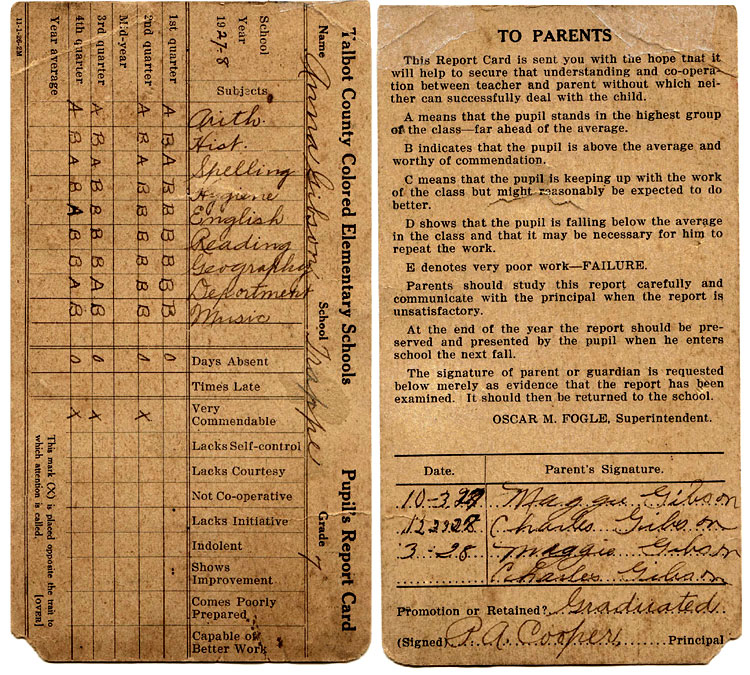 Talbot County Colored Elementary Schools Pupil's Report Card
Name Anna Gibson School Trappe Grade 7
School Year 1927-8
Subjects
1st quarter
2nd quarter
Mid-year
3rd quarter
4th quarter
Year average
11-1-26-2M
A A A Arith.
B B B B Hist.
A A A A Spelling
B B B B Hygiene
A B B B English
B B B B Reading
B B B B Geography
A A B B Department
B B B B Music
0 0 0 0 Days Absent
Times Late
X X X Very Commendable
Lacks Self-control
Lacks Courtesy
Not Co-operative
Lacks Initiative
Indolent
Shows Improvement
Comes Poorly Prepared
Capable of Better Work
This mark (X) is placed opposite the trait to
which attention is called. [OVER]
TO PARENTS
This Report Card is sent you with the hope that it
will help to secure that understanding and co-opera-
tion between teacher and parent without which nei-
ther can successfully deal with the child.
A means that the pupil stands in the highest group
of the class—far ahead of the average.
B indicates that the pupil is above the average and
worthy of commendation.
C means that the pupil is keeping up with the work
of the class but might reasonably be expected to do
better.
D shows that the pupil is falling below the average
in the class and that it may be necessary for him to
repeat the work.
E denotes very poor work—FAILURE.
Parents should study this report carefully and
communicate with the principal when the report is
unsatisfactory.
At the end of the year the report should be pre-
served and presented by the pupil when he enters
school the next fall.
The signature of parent or guardian is requested
below merely as evidence that the report has been
examined. It should then be returned to the school.
OSCAR M. FOGLE, Superintendent.
Date. Parent's Signature.
Maggie Gibson
Charles Gibson
3-28 Maggie Gibson
Charles Gibson
Promotion or Retained? Graduated
(Signed) P. A. Cooper, Principal